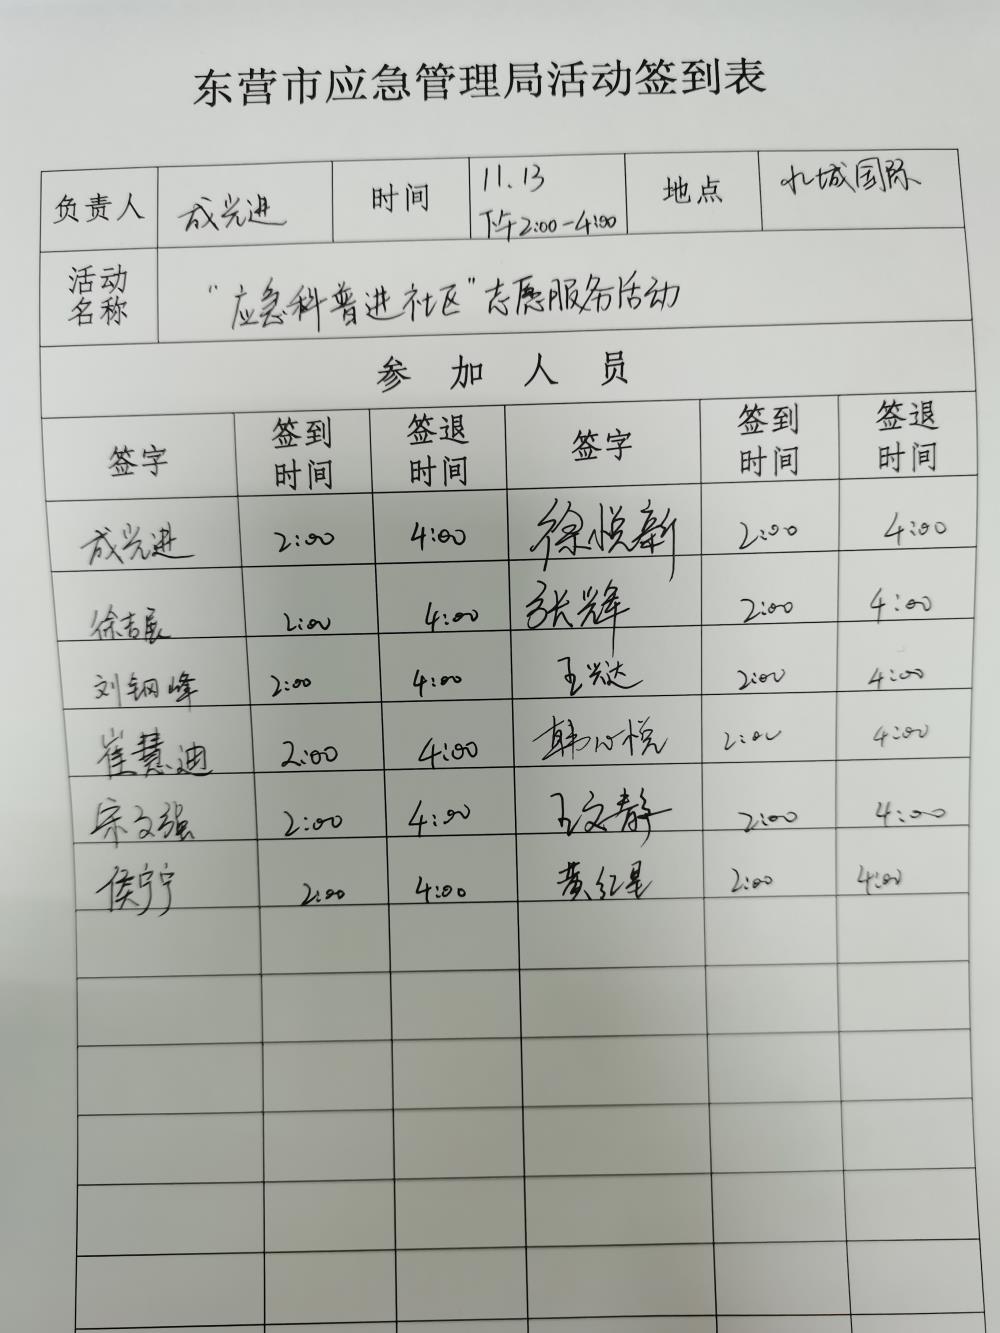 东营市应急管理局活动签到表
负责人 成光进 时间 11.13 下午2:00-4:00 地点 水城国际
活动名称 "应急科普进社区"志愿服务活动
参加人员
签字 签到时间 签退时间 签字 签到时间 签退时间
成光进 2:00 4:00 徐悦新 2:00 4:00
徐吉展 2:00 4:00 张辉 2:00 4:00
刘钢峰 2:00 4:00 王兴达 2:00 4:00
崔慧迪 2:00 4:00 韩心悦 2:00 4:00
宋文强 2:00 4:00 王文静 2:00 4:00
侯宁宁 2:00 4:00 黄红星 2:00 4:00